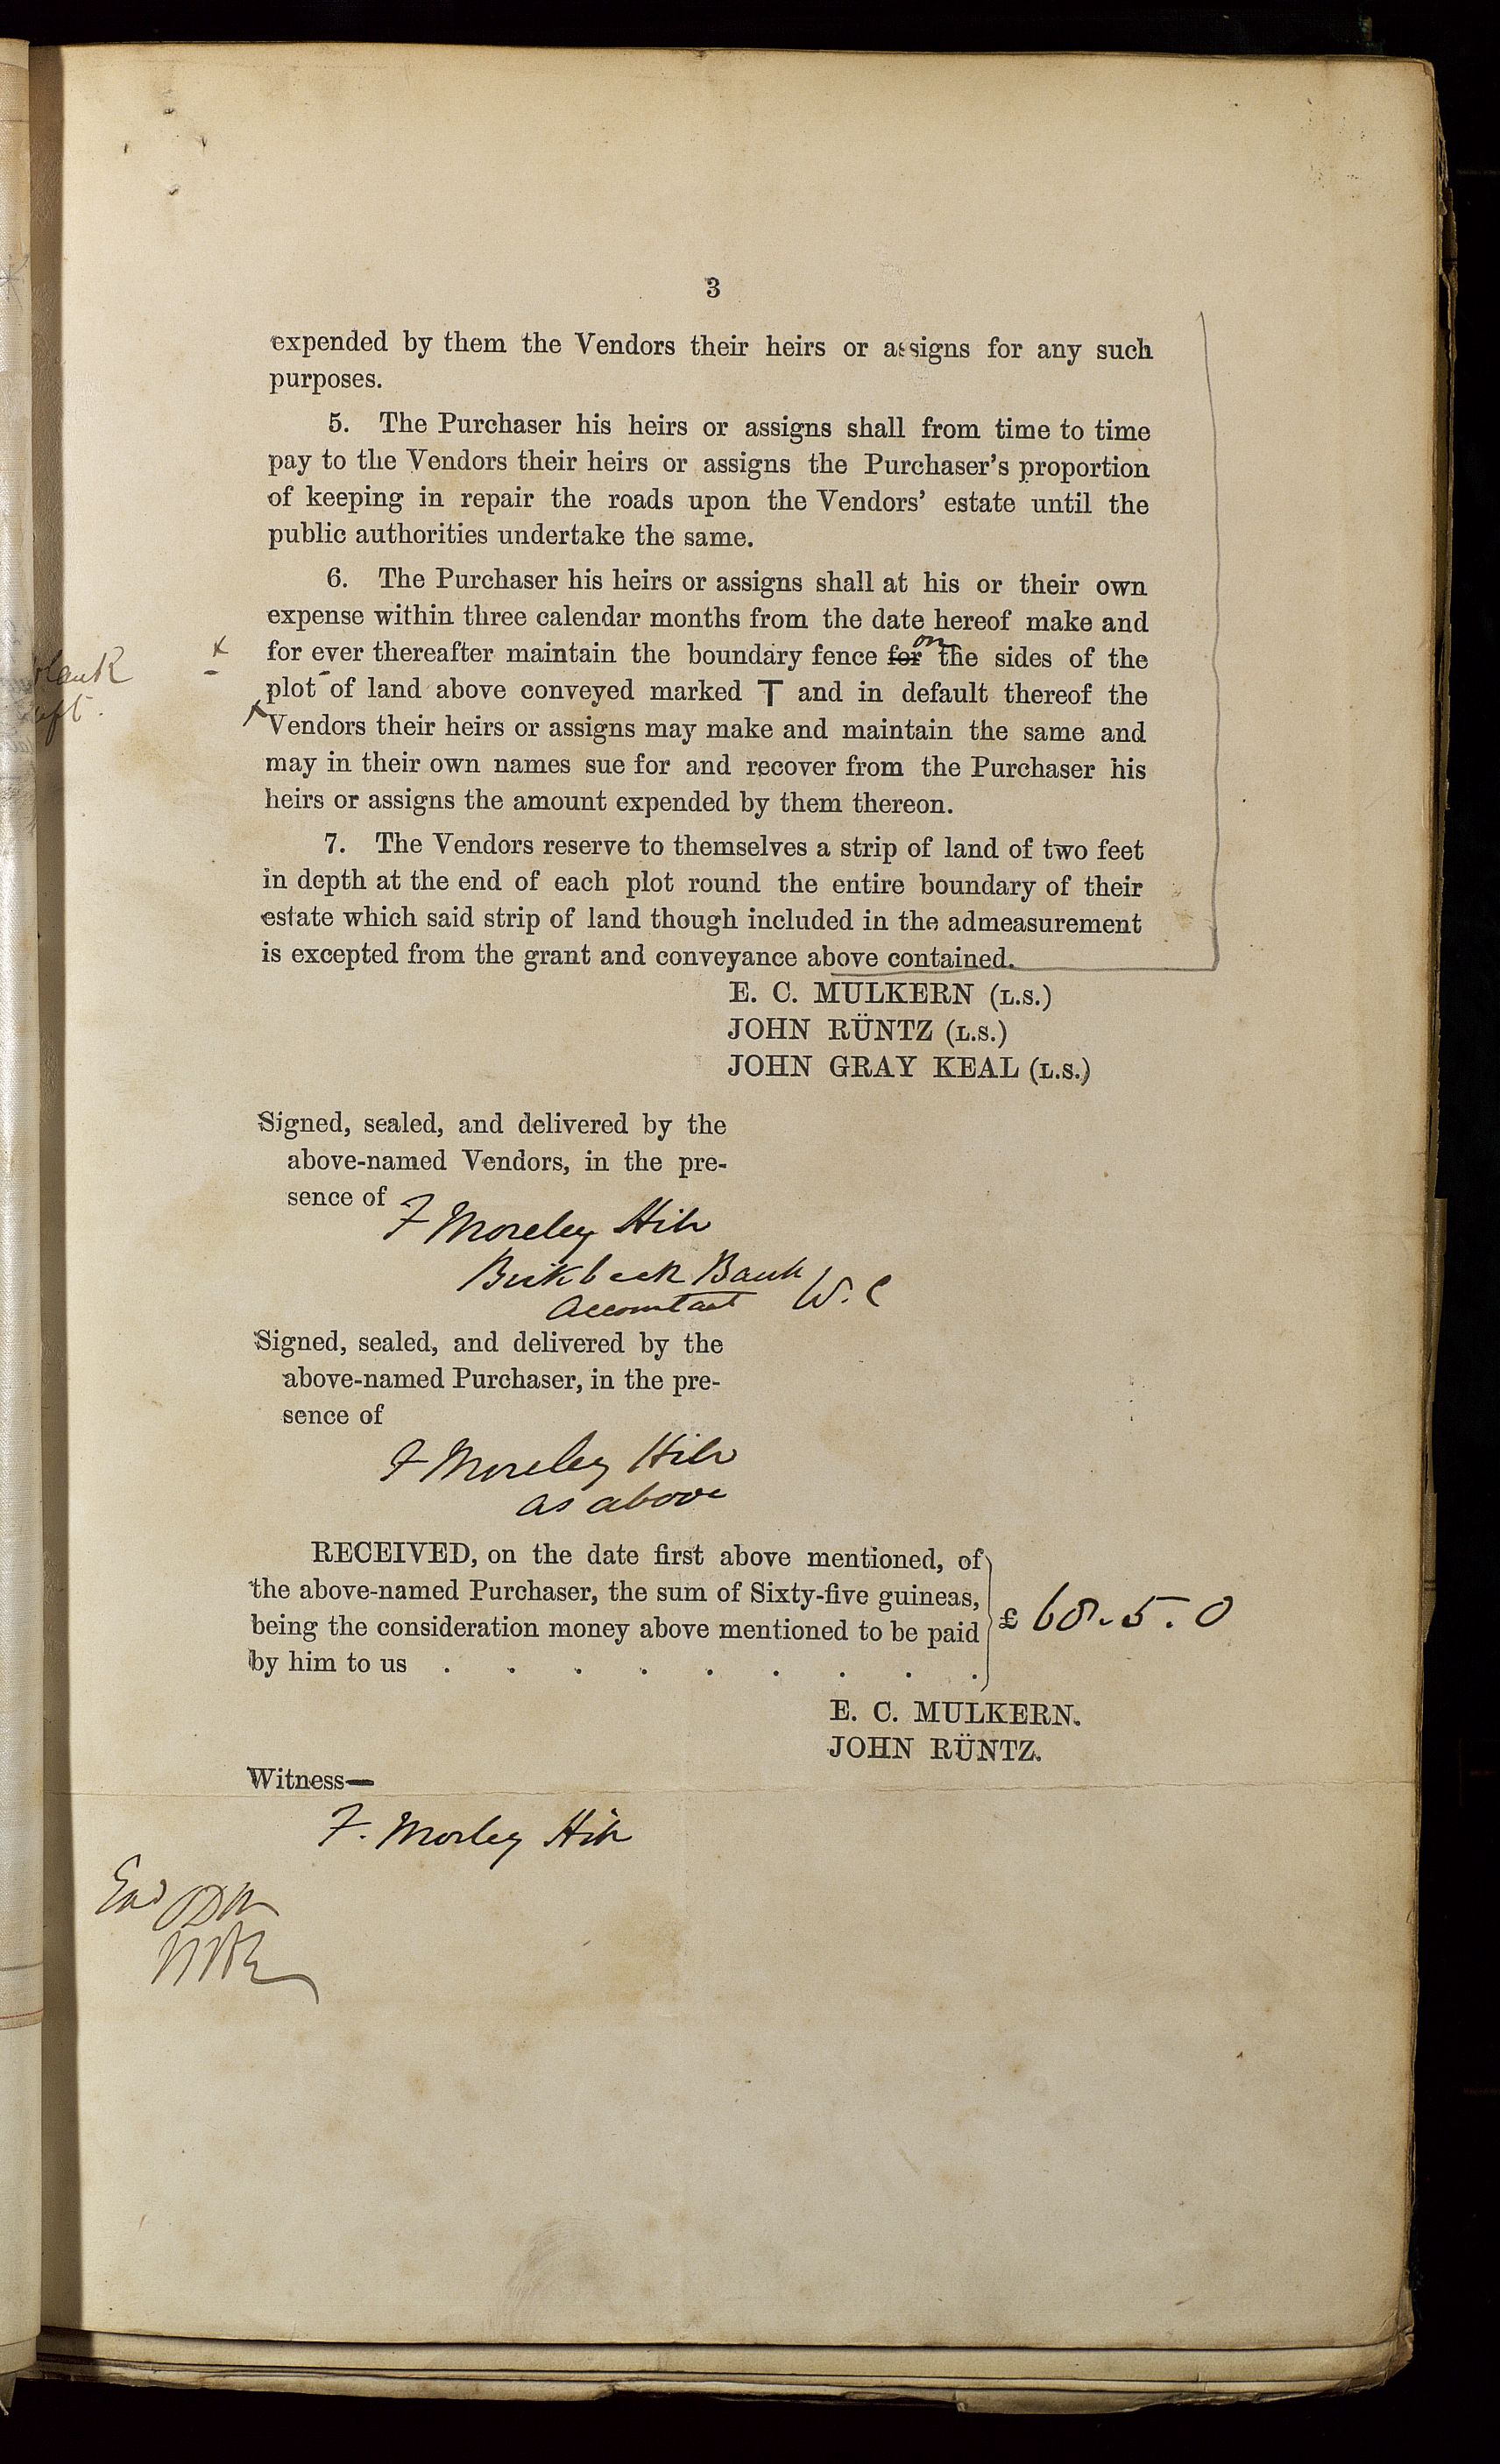 3
expended by them the Vendors their heirs or assigns for any such
purposes.
5. The Purchaser his heirs or assigns shall from time to time
pay to the Vendors their heirs or assigns the Purchaser's proportion
of keeping in repair the roads upon the Vendors' estate until the
public authorities undertake the same.
6. The Purchaser his heirs or assigns shall at his or their own
expense within three calendar months from the date hereof make and
on
for ever thereafter maintain the boundary fence for the sides of the
plot of land above conveyed marked T and in default thereof the
Vendors their heirs or assigns may make and maintain the same and
may in their own names sue for and recover from the Purchaser his
heirs or assigns the amount expended by them thereon.
7. The Vendors reserve to themselves a strip of land of two feet
in depth at the end of each plot round the entire boundary of their
estate which said strip of land though included in the admeasurement
is excepted from the grant and conveyance above contained.
E. C. MULKERN (L.S.)
JOHN RÜNTZ (L.S.)
JOHN GRAY KEAL (L.S.)
Signed, sealed, and delivered by the
above-named Vendors, in the pre-
sence of
F Moreley Hill
Birkbeck Bank W.C
Accountant
Signed, sealed, and delivered by the
above-named Purchaser, in the pre-
sence of
F Moreley Hill
as above
RECEIVED, on the date first above mentioned, of
the above-named Purchaser, the sum of Sixty-five guineas,
being the consideration money above mentioned to be paid
£ 68.5.0
by him to us . . . . . . . . .
E. C. MULKERN.
JOHN RÜNTZ.
Witness—
F. Morley Hill